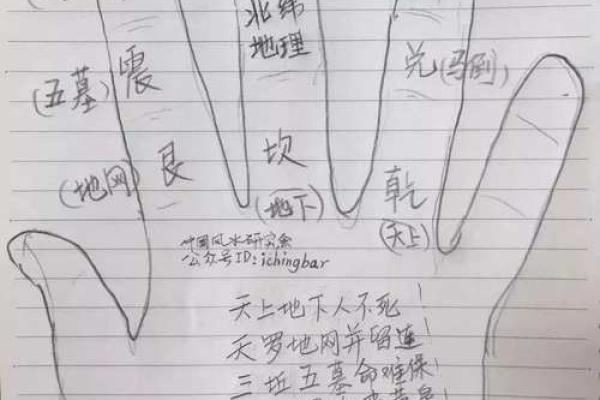 北纬
地理
震
(五墓)
兑(马倒)
艮
坎
(地网)
(地下)
乾
(天上)
中国风水研究会
公众号ID:ichingbar
天上地下人不死!
天罗地网并留连!
三坵五墓命难保!